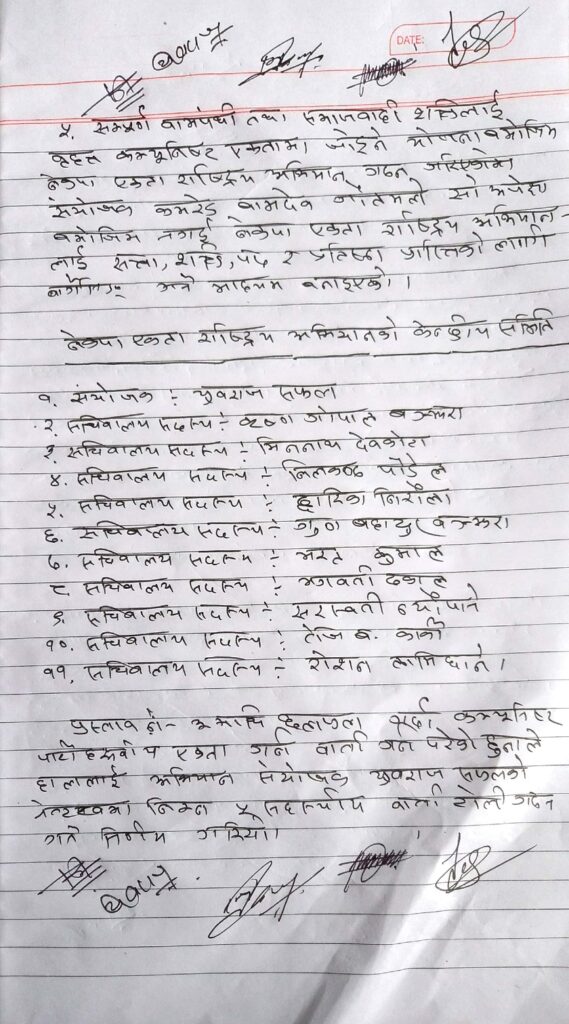 DATE:
५. सम्पूर्ण वामपंथी तथा समाजवादी शक्तिलाई
वृहत्त कम्युनिष्ट एकतामा जोड्ने घोषणा बमोजिम
नेकपा एकता राष्ट्रिय अभियान गठन गरिएकोमा
संयोजक कमरेड वामदेव गौतमले सो मर्म
बमोजिम नगई नेकपा एकता राष्ट्रिय अभियान-
लाई सत्ता, शक्ति, पद र प्रतिष्ठा प्राप्तिको लागि
बार्गेनिङ गर्ने माध्यम बनाइएको ।
नेकपा एकता राष्ट्रिय अभियानको केन्द्रीय समिति
१. संयोजक :- युवराज सफल
२. सचिवालय सदस्य :- कृष्ण गोपाल बञ्जरा
३. सचिवालय सदस्य :- मिननाथ देवकोटा
४. सचिवालय सदस्य :- निलकण्ठ पौडेल
५. सचिवालय सदस्य :- द्वारिका निरौला
६. सचिवालय सदस्य :- गुण बहादुर बञ्जरा
७. सचिवालय सदस्य :- भरत कुमाल
८. सचिवालय सदस्य :- भगवती ढकाल
९. सचिवालय सदस्य :- सरस्वती न्यौपाने
१०. सचिवालय सदस्य :- तेजि ब. कार्की
११. सचिवालय सदस्य :- रोशन लामिछाने ।
प्रस्ताव नं- ३ माथि छलफल गर्दा कम्युनिष्ट
पार्टी हरूबीच एकता गर्न वार्ता गर्न परेको हुनाले
हाललाई अभियान संयोजक युवराज सफलको
नेतृत्वमा निम्न ५ सदस्यीय वार्ता टोली गठन
गर्ने निर्णय गरियो।